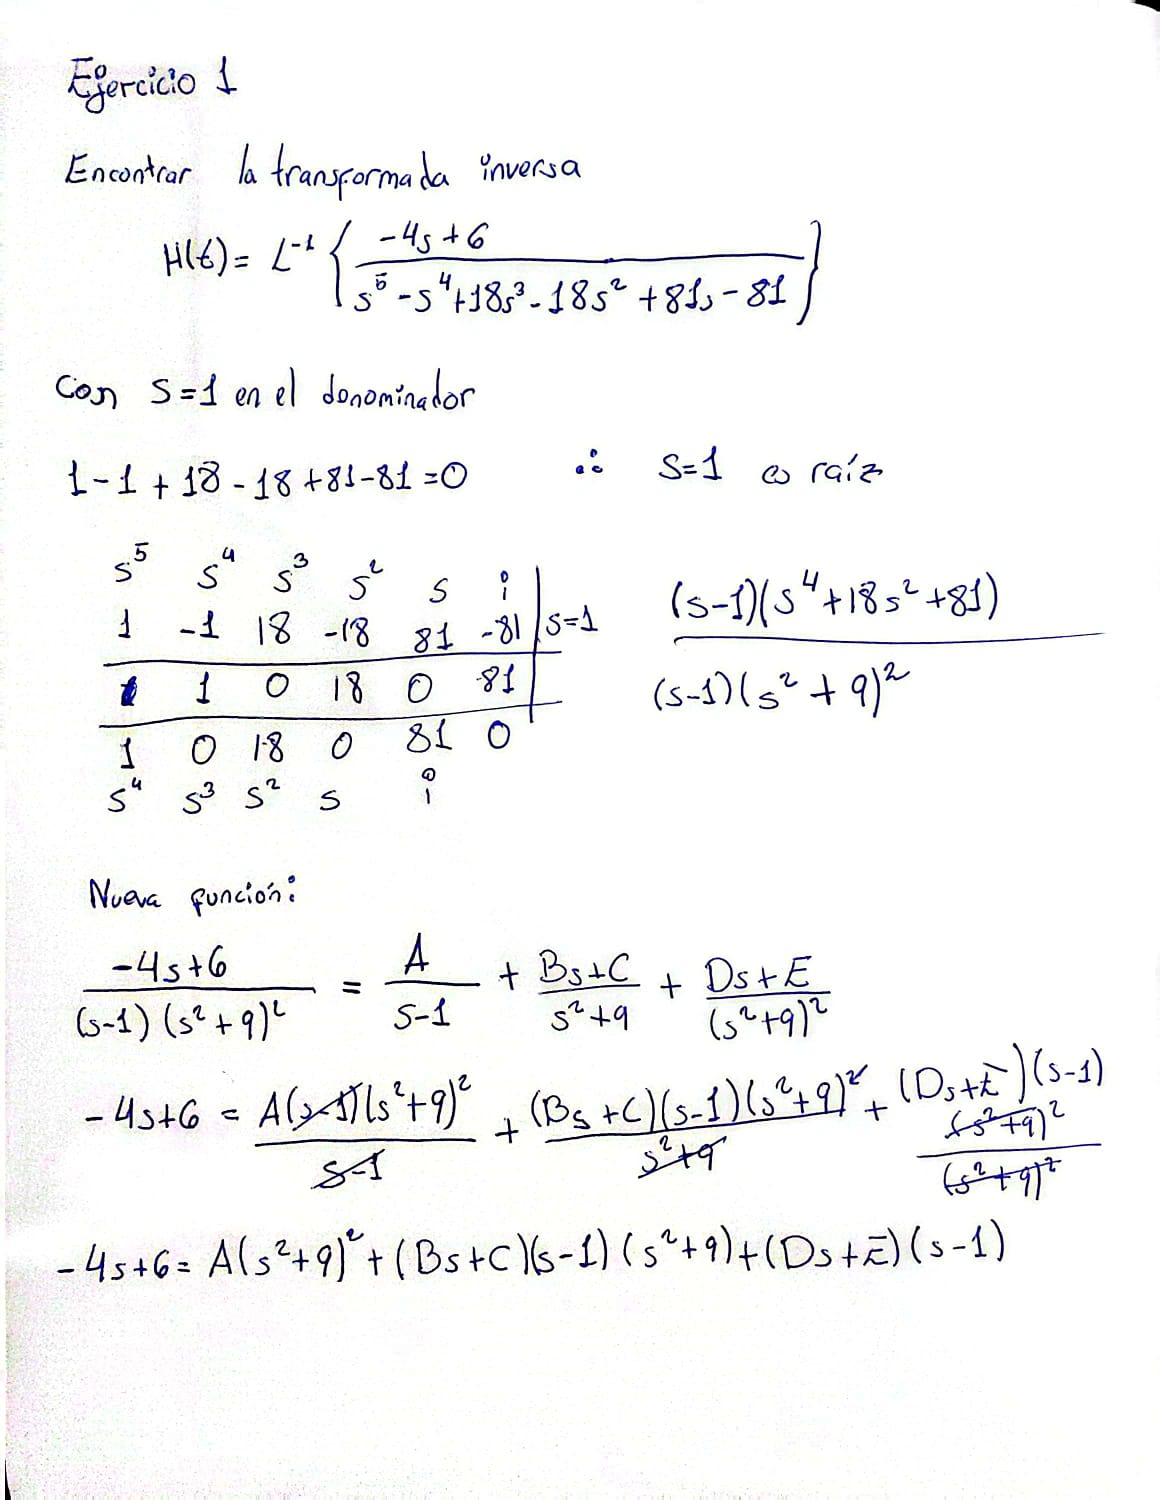 Ejercicio 1
Encontrar la transformada inversa
H(t) = L⁻¹ { (-4s + 6) / (s⁵ - s⁴ + 18s³ - 18s² + 81s - 81) }
Con S=1 en el donominador
1 - 1 + 18 - 18 + 81 - 81 = 0 ∴ S=1 es raíz
s⁵ s⁴ s³ s² s i
1 -1 18 -18 81 -81 | s=1 (s-1)(s⁴+18s²+81)
1 0 18 0 81 (s-1)(s²+9)²
1 0 18 0 81 0
s⁴ s³ s² s i
Nueva función:
(-4s+6) / ((s-1)(s²+9)²) = A / (s-1) + (Bs+C) / (s²+9) + (Ds+E) / (s²+9)²
-4s+6 = A(s-1)(s²+9)² / (s-1) + (Bs+C)(s-1)(s²+9)² / (s²+9) + (Ds+E)(s-1)(s²+9)² / (s²+9)²
-4s+6 = A(s²+9)² + (Bs+C)(s-1)(s²+9) + (Ds+E)(s-1)